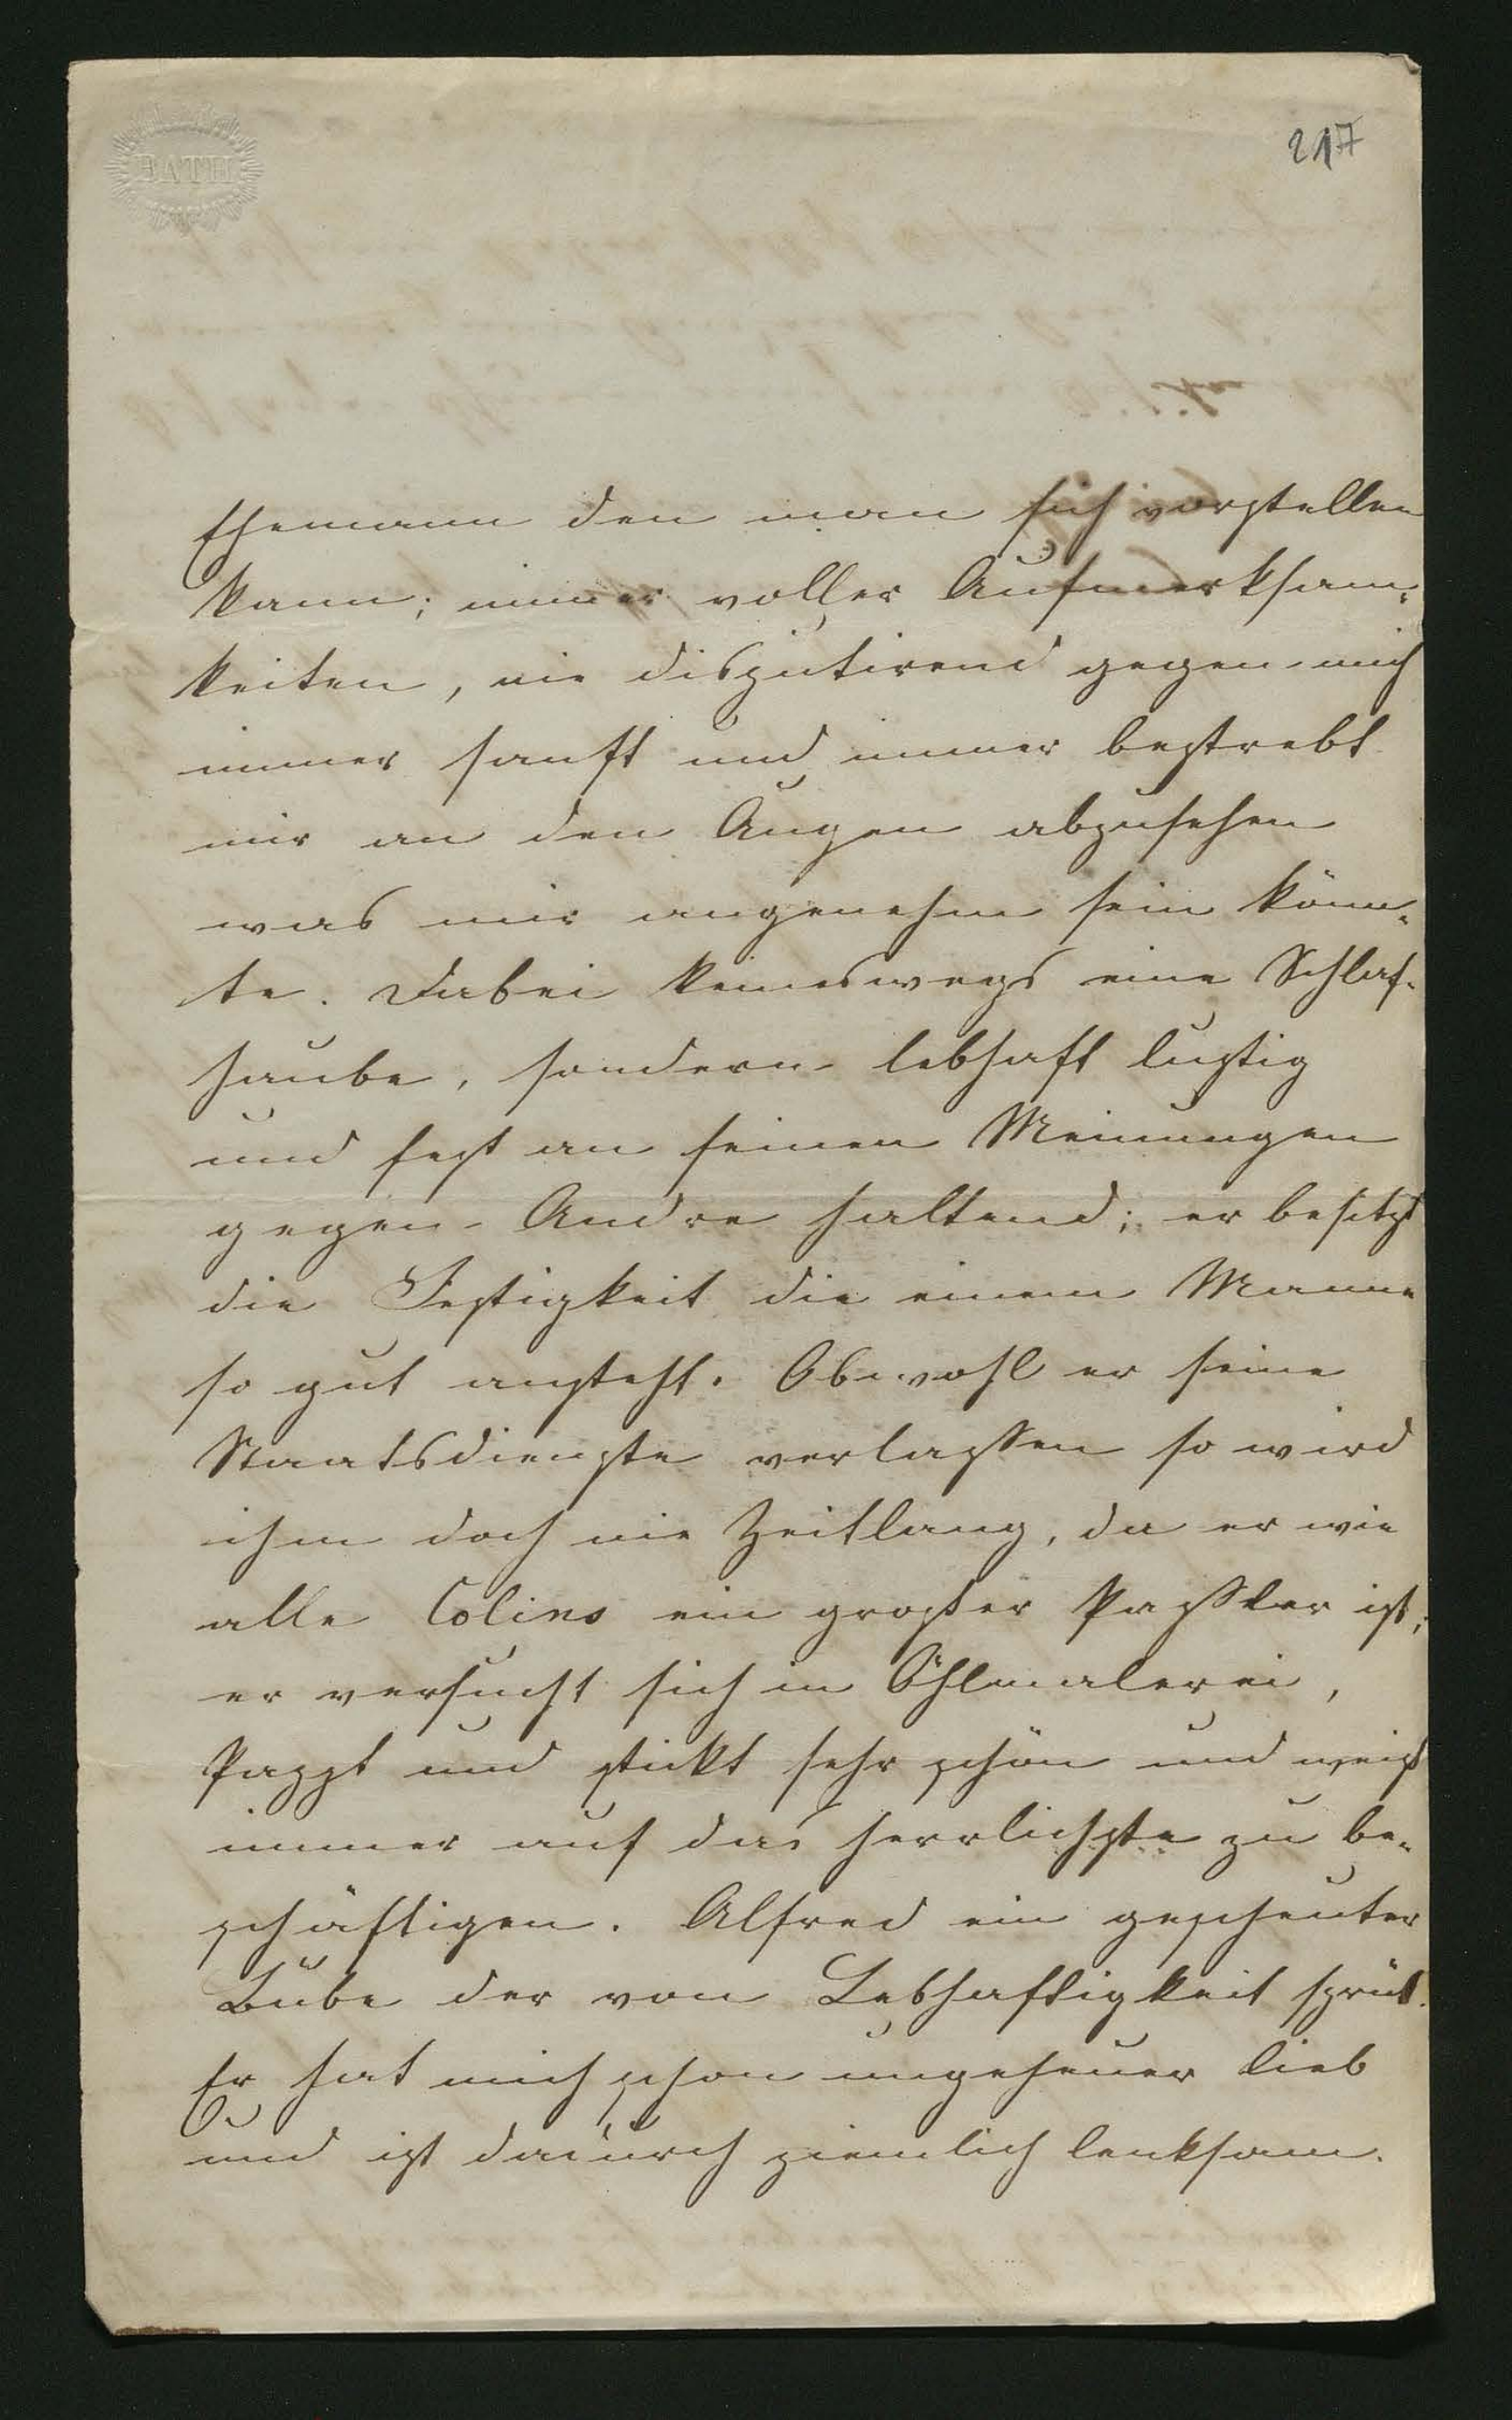 BATH
217
Ehemann den man sich vorstellen
kann; immer voller Aufmerksam-
keiten, nie disputirend gegen mich
immer sanft und immer bestrebt
mir an den Augen abzusehen
was mir angenehm sein könn-
te. Dabei keineswegs eine Schlaf-
haube, sondern lebhaft lustig
und fest an seinen Meinungen
gegen Andre haltend; er besitzt
die Festigkeit die einem Manne
so gut ansteht. Obwohl er seine
Staatsdienste verlassen so wird
ihm doch nie Zeitlang, da er wie
alle Colins ein großer Passler ist;
er versucht sich in Öhlmalerei,
Pappt und stickt sehr schön und weiß
immer auf das herrlichste zu be-
schäftigen. Alfred ein gescheuter
Bube der von Lebhaftigkeit sprüt.
Er hat mich schon ungeheuer lieb
und ist dadurch ziemlich lenksam.